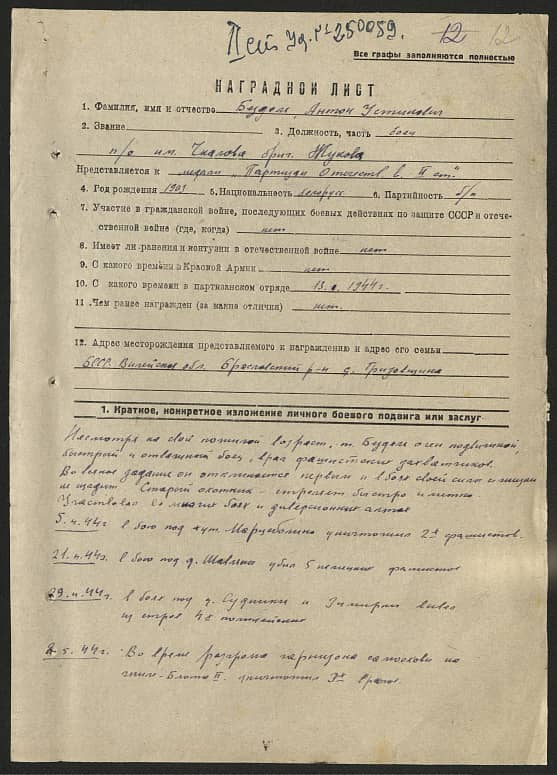 Уд. № 250059. 12 12
Все графы заполняются полностью
НАГРАДНОЙ ЛИСТ
1. Фамилия, имя и отчество Бездель Антон Устинович
2. Звание 3. Должность, часть боец
п/о им. Чкалова бриг. Жукова
Представляется к медали "Партизан Отечеств. в. II ст."
4. Год рождения 1903 5. Национальность белорусс 6. Партийность б/п
7. Участие в гражданской войне, последующих боевых действиях по защите СССР и отече-
ственной войне (где, когда) нет
8. Имеет ли ранения и контузии в отечественной войне нет
9. С какого времени в Красной Армии нет
10. С какого времени в партизанском отряде 1944 г.
11. Чем ранее награжден (за какие отличия) нет.
12. Адрес месторождения представляемого к награждению и адрес его семьи
БССР Вилейская обл. Браславский р-н д.
1. Краткое, конкретное изложение личного боевого подвига или заслуг
Несмотря на свой пожилой возраст, т. Бездель очен подвижной,
быстрый и отважный боец, враг фашистских захватчиков.
Во всякое задание он откликается первым и в бою своей силы и жизни
не щадит. Старый охотник - стреляет быстро и метко.
Участвовал во многих боях и диверсионных актах
5.4.44г. в бою под уничтожил 2х фашистов.
21.4.44г. в бою под д. убил 5 немецких фашистов
29.4.44г. в бою под д. Судники и вывел
из строя 4х полицейских
5.44г. Во время разгрома гарнизона самооховы на
уничтожил врагов.